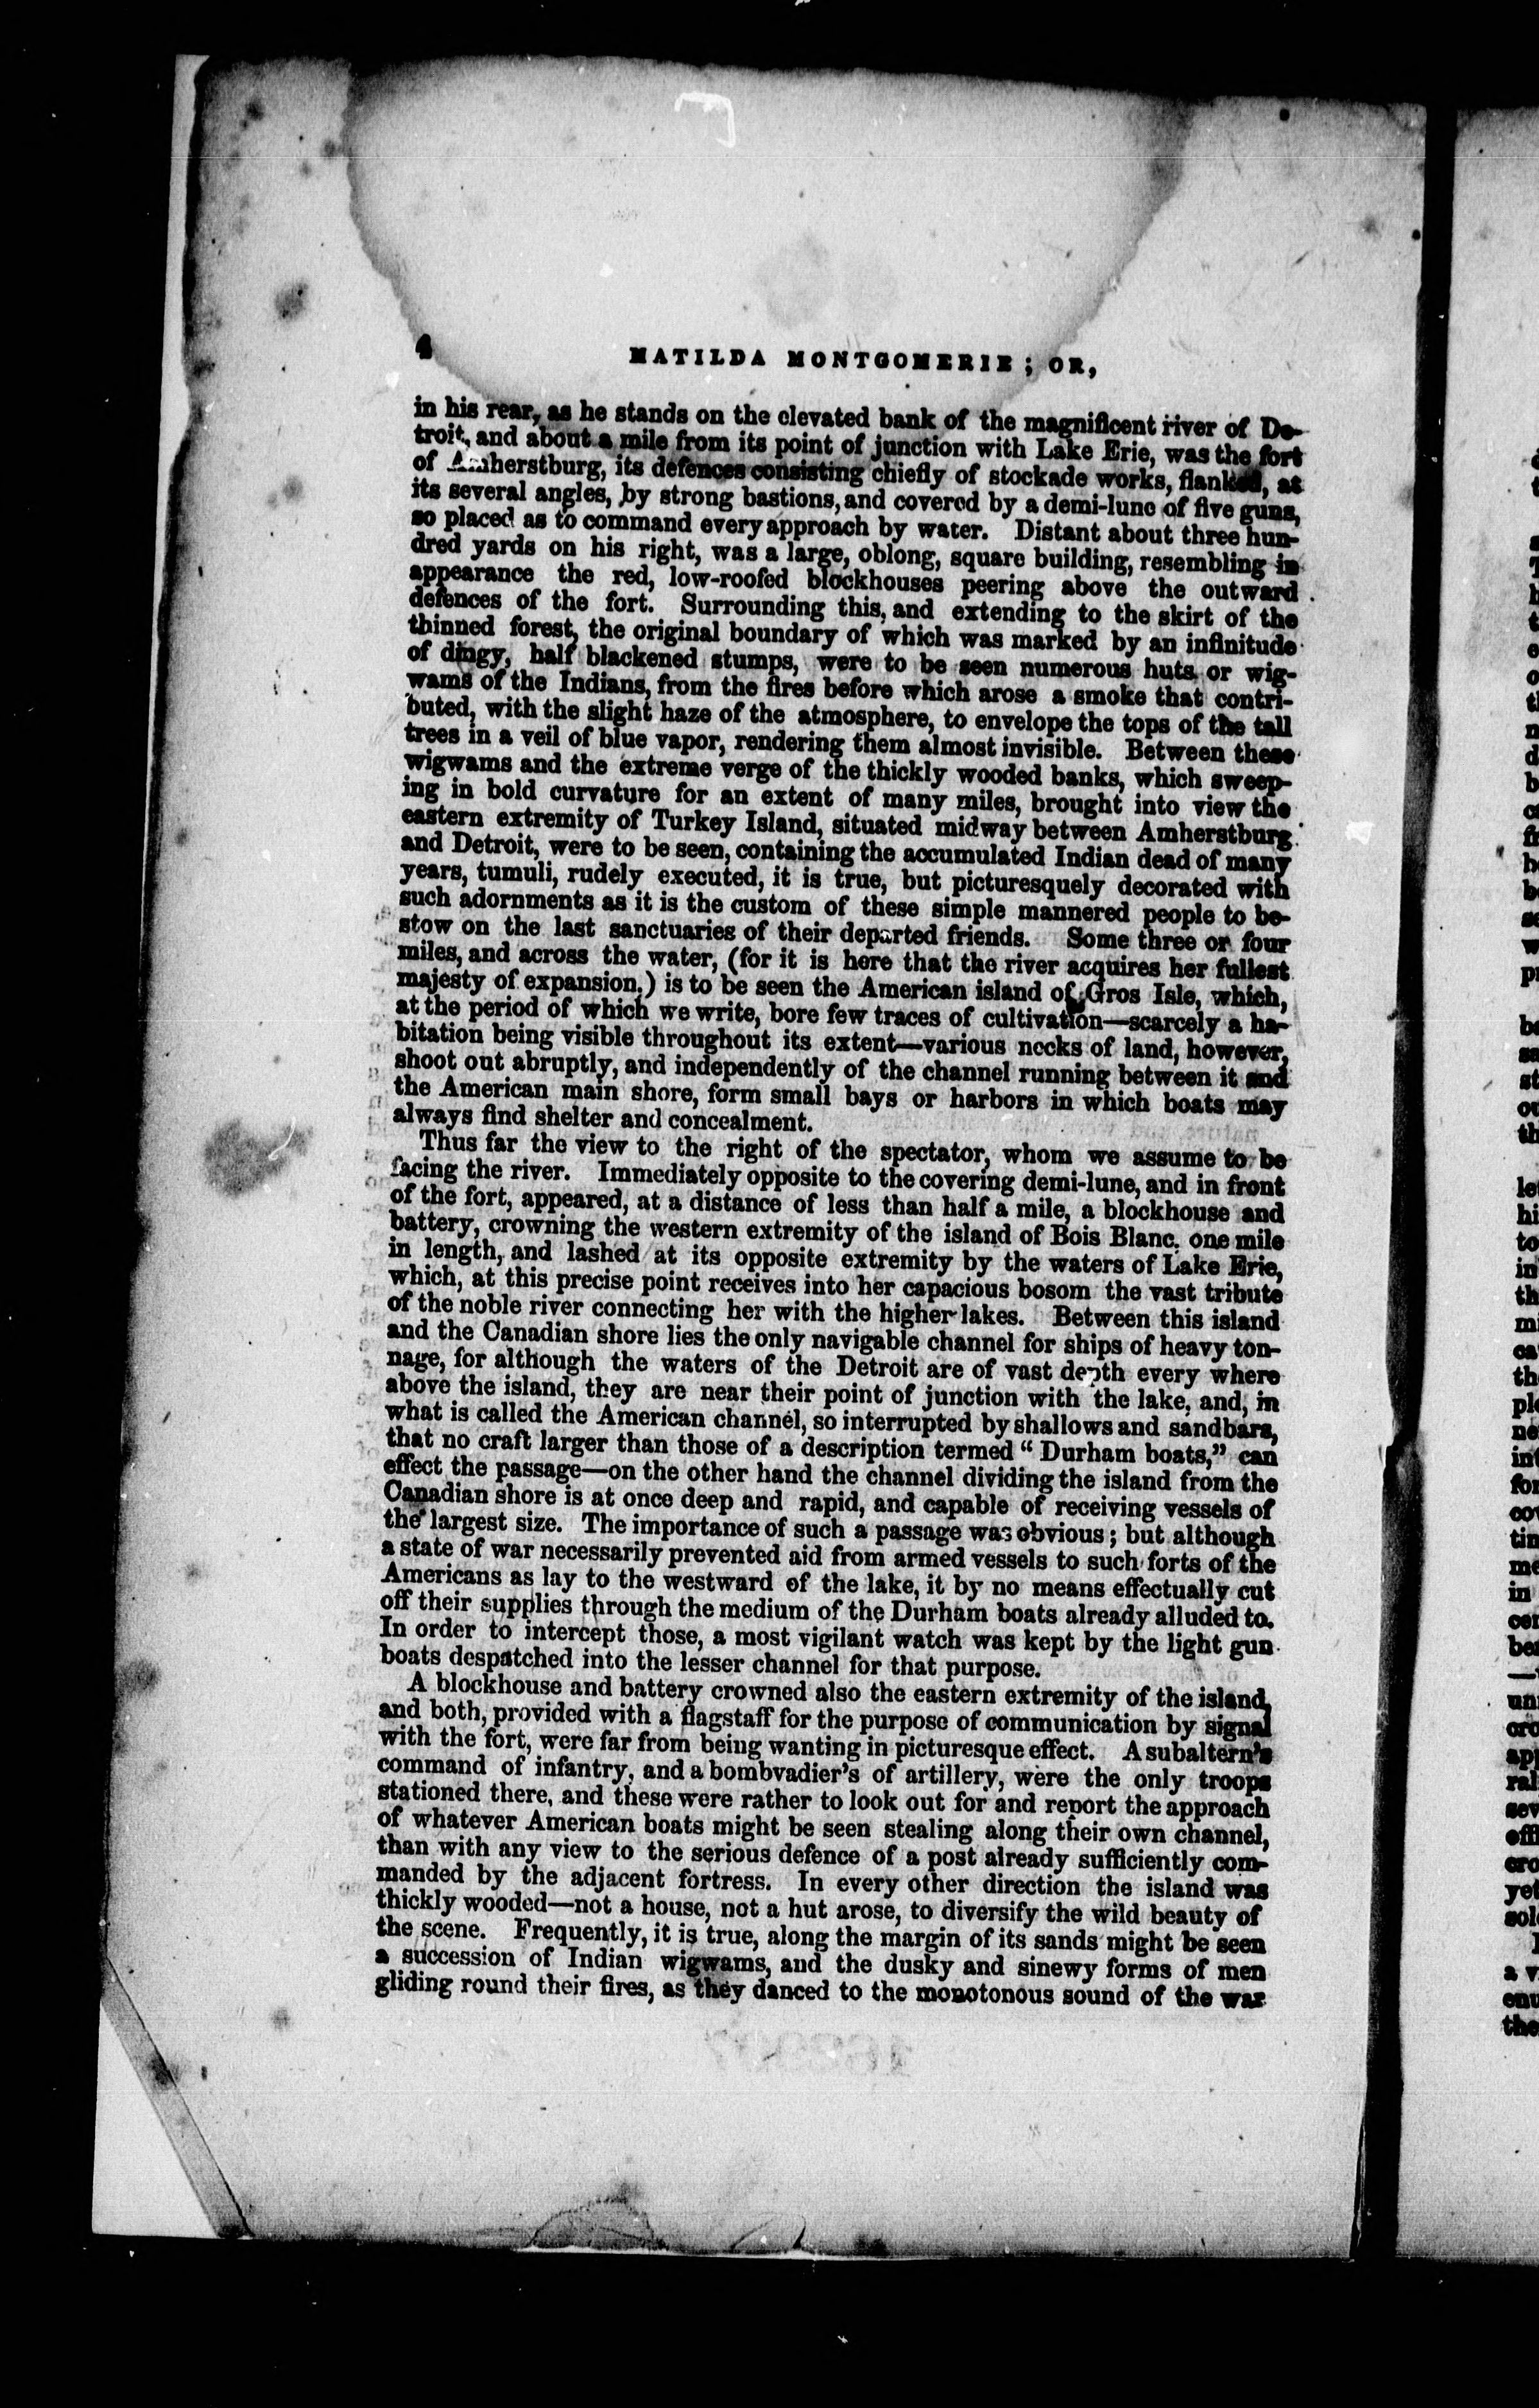 4
MATILDA MONTGOMERIE; OR,
in his rear, as he stands on the elevated bank of the magnificent river of De-
troit, and about a mile from its point of junction with Lake Erie, was the fort
of Amherstburg, its defences consisting chiefly of stockade works, flanked, at
its several angles, by strong bastions, and covered by a demi-lune of five guns,
so placed as to command every approach by water. Distant about three hun-
dred yards on his right, was a large, oblong, square building, resembling in
appearance the red, low-roofed blockhouses peering above the outward
defences of the fort. Surrounding this, and extending to the skirt of the
thinned forest, the original boundary of which was marked by an infinitude
of dingy, half blackened stumps, were to be seen numerous huts or wig-
wams of the Indians, from the fires before which arose a smoke that contri-
buted, with the slight haze of the atmosphere, to envelope the tops of the tall
trees in a veil of blue vapor, rendering them almost invisible. Between these
wigwams and the extreme verge of the thickly wooded banks, which sweep-
ing in bold curvature for an extent of many miles, brought into view the
eastern extremity of Turkey Island, situated midway between Amherstburg
and Detroit, were to be seen, containing the accumulated Indian dead of many
years, tumuli, rudely executed, it is true, but picturesquely decorated with
such adornments as it is the custom of these simple mannered people to be-
stow on the last sanctuaries of their departed friends. Some three or four
miles, and across the water, (for it is here that the river acquires her fullest
majesty of expansion,) is to be seen the American island of Gros Isle, which,
at the period of which we write, bore few traces of cultivation—scarcely a ha-
bitation being visible throughout its extent—various necks of land, however,
shoot out abruptly, and independently of the channel running between it and
the American main shore, form small bays or harbors in which boats may
always find shelter and concealment.
Thus far the view to the right of the spectator, whom we assume to be
facing the river. Immediately opposite to the covering demi-lune, and in front
of the fort, appeared, at a distance of less than half a mile, a blockhouse and
battery, crowning the western extremity of the island of Bois Blanc, one mile
in length, and lashed at its opposite extremity by the waters of Lake Erie,
which, at this precise point receives into her capacious bosom the vast tribute
of the noble river connecting her with the higher lakes. Between this island
and the Canadian shore lies the only navigable channel for ships of heavy ton-
nage, for although the waters of the Detroit are of vast depth every where
above the island, they are near their point of junction with the lake, and, in
what is called the American channel, so interrupted by shallows and sandbars,
that no craft larger than those of a description termed “Durham boats,” can
effect the passage—on the other hand the channel dividing the island from the
Canadian shore is at once deep and rapid, and capable of receiving vessels of
the largest size. The importance of such a passage was obvious; but although
a state of war necessarily prevented aid from armed vessels to such forts of the
Americans as lay to the westward of the lake, it by no means effectually cut
off their supplies through the medium of the Durham boats already alluded to.
In order to intercept those, a most vigilant watch was kept by the light gun
boats despatched into the lesser channel for that purpose.
A blockhouse and battery crowned also the eastern extremity of the island,
and both, provided with a flagstaff for the purpose of communication by signal
with the fort, were far from being wanting in picturesque effect. A subaltern's
command of infantry, and a bombvadier's of artillery, were the only troops
stationed there, and these were rather to look out for and report the approach
of whatever American boats might be seen stealing along their own channel,
than with any view to the serious defence of a post already sufficiently com-
manded by the adjacent fortress. In every other direction the island was
thickly wooded—not a house, not a hut arose, to diversify the wild beauty of
the scene. Frequently, it is true, along the margin of its sands might be seen
a succession of Indian wigwams, and the dusky and sinewy forms of men
gliding round their fires, as they danced to the monotonous sound of the war